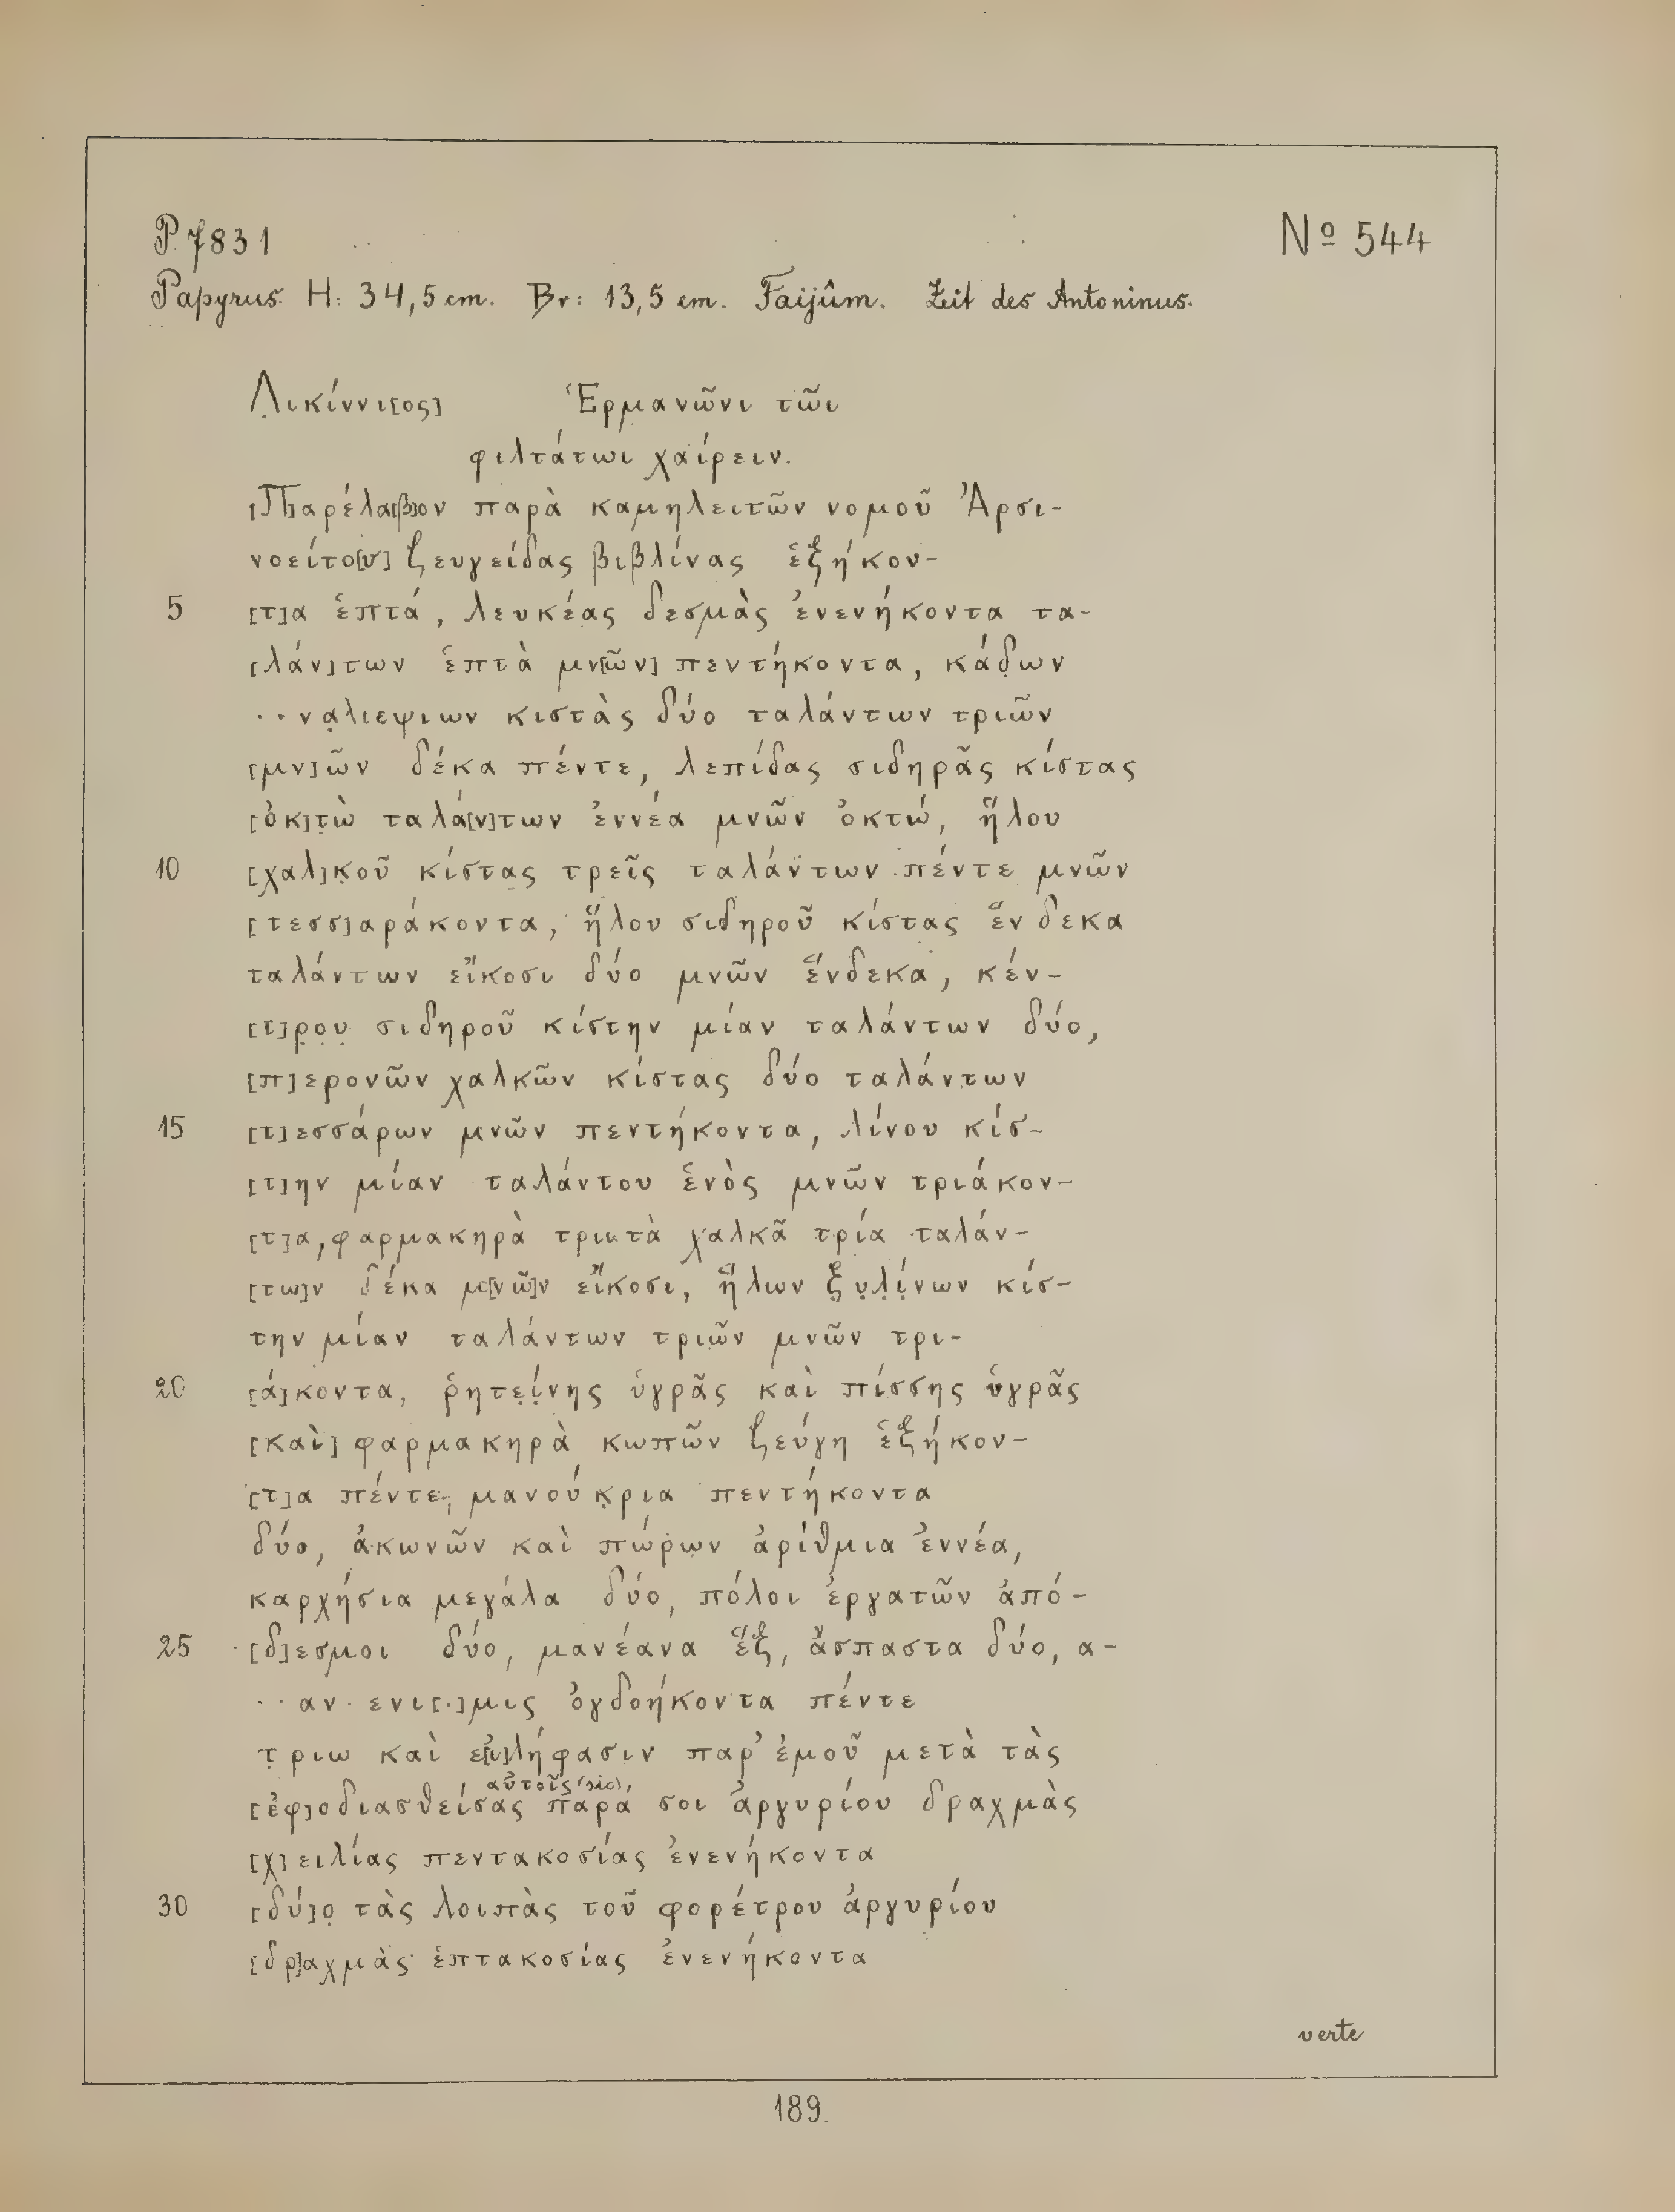 P. 7831
Nº 544
Papyrus. H: 34,5 cm. Br: 13,5 cm. Faijûm. Zeit des Antoninus.
Λ̣ικίννι[ος] Ἑρμανῶνι τῶι
φιλτάτωι χαίρειν.
[Π]αρέλα[β]ον παρὰ καμηλειτῶν νομοῦ Ἀρσι-
νοείτο[υ] ζευγείδας βιβλίνας ἑξήκον-
5 [τ]α ἑπτά, λευκέας δεσμὰς ἐνενήκοντα τα-
[λάν]των ἑπτὰ μν[ῶν] πεντήκοντα, κάδ̣ων
··να̣λιεψιων κιστὰς δύο ταλάντων τριῶν
[μν]ῶν δέκα πέντε, λεπίδας σιδηρᾶς κίστας
[ὀκ]τ̣ὼ ταλά[ν]των ἐννέα μνῶν ὀκτώ, ἥλου
10 [χαλ]κ̣οῦ κίστας τρεῖς ταλάντων πέντε μνῶν
[τεσσ]αράκοντα, ἥλου σιδηροῦ κίστας ἕνδεκα
ταλάντων εἴκοσι δύο μνῶν ἕνδεκα, κέν-
[τ]ρ̣ο̣υ̣ σιδηροῦ κίστην μίαν ταλάντων δύο,
[π]ερονῶν χαλκῶν κίστας δύο ταλάντων
15 [τ]εσσάρων μνῶν πεντήκοντα, λίνου κίσ-
[τ]ην μίαν ταλάντου ἑνὸς μνῶν τριάκον-
[τ]α, φαρμακηρὰ χαλκᾶ τρία ταλάν-
[τω]ν δέκα μ[νῶ]ν εἴκοσι, ἥλων ξ̣υ̣λ̣ί̣νων κίσ-
την μίαν ταλάντων τριῶν μνῶν τρι-
20 [ά]κοντα, ῥητε̣ί̣νης ὑγρᾶς καὶ πίσσης ὑγρᾶς
[καὶ] φαρμακηρὰ κωπῶν ζεύγη ἑξήκον-
[τ]α πέντε, μανούκ̣ρια πεντήκοντα
δύο, ἀκωνῶν καὶ πώρων ἀρίθμια ἐννέα,
καρχήσια μεγάλα δύο, πόλοι ἐργατῶν ἀπό-
25 [δ]εσμοι δύο, μανέανα ἕξ, ἄσπαστα δύο, α-
··αν·ενι[·]μις ὀγδοήκοντα πέντε
τ̣ριω καὶ ε[ἰ]λήφασιν παρ’ ἐμοῦ μετὰ τὰς
αὐτοῖς (sic)
[ἐφ]οδιασθείσας παρά σοι ἀργυρίου δραχμὰς
[χ]ειλίας πεντακοσίας ἐνενήκοντα
30 [δύ]ο̣ τὰς λοιπὰς τοῦ φορέτρου ἀργυρίου
[δρ]αχμὰς ἑπτακοσίας ἐνενήκοντα
verte
189.